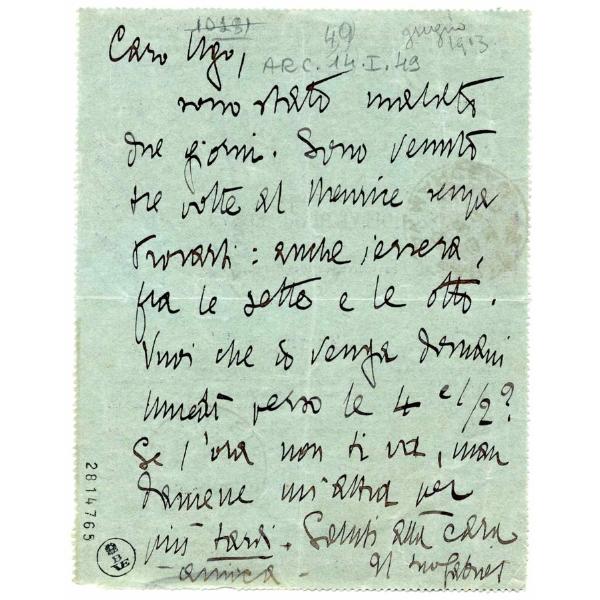 (0181)
49
giugno
1913.
ARC. 14. I. 49
Caro Ugo,
sono stato malato
due giorni. Sono venuto
tre volte al Meurice senza
trovarti: anche iersera,
fra le sette e le otto.
Vuoi che io venga domani
lunedì verso le 4 e 1/2?
Se l'ora non ti va, man
damene un'altra per
più tardi. Saluti alla cara
amica - Il tuo Gabriel
2814765